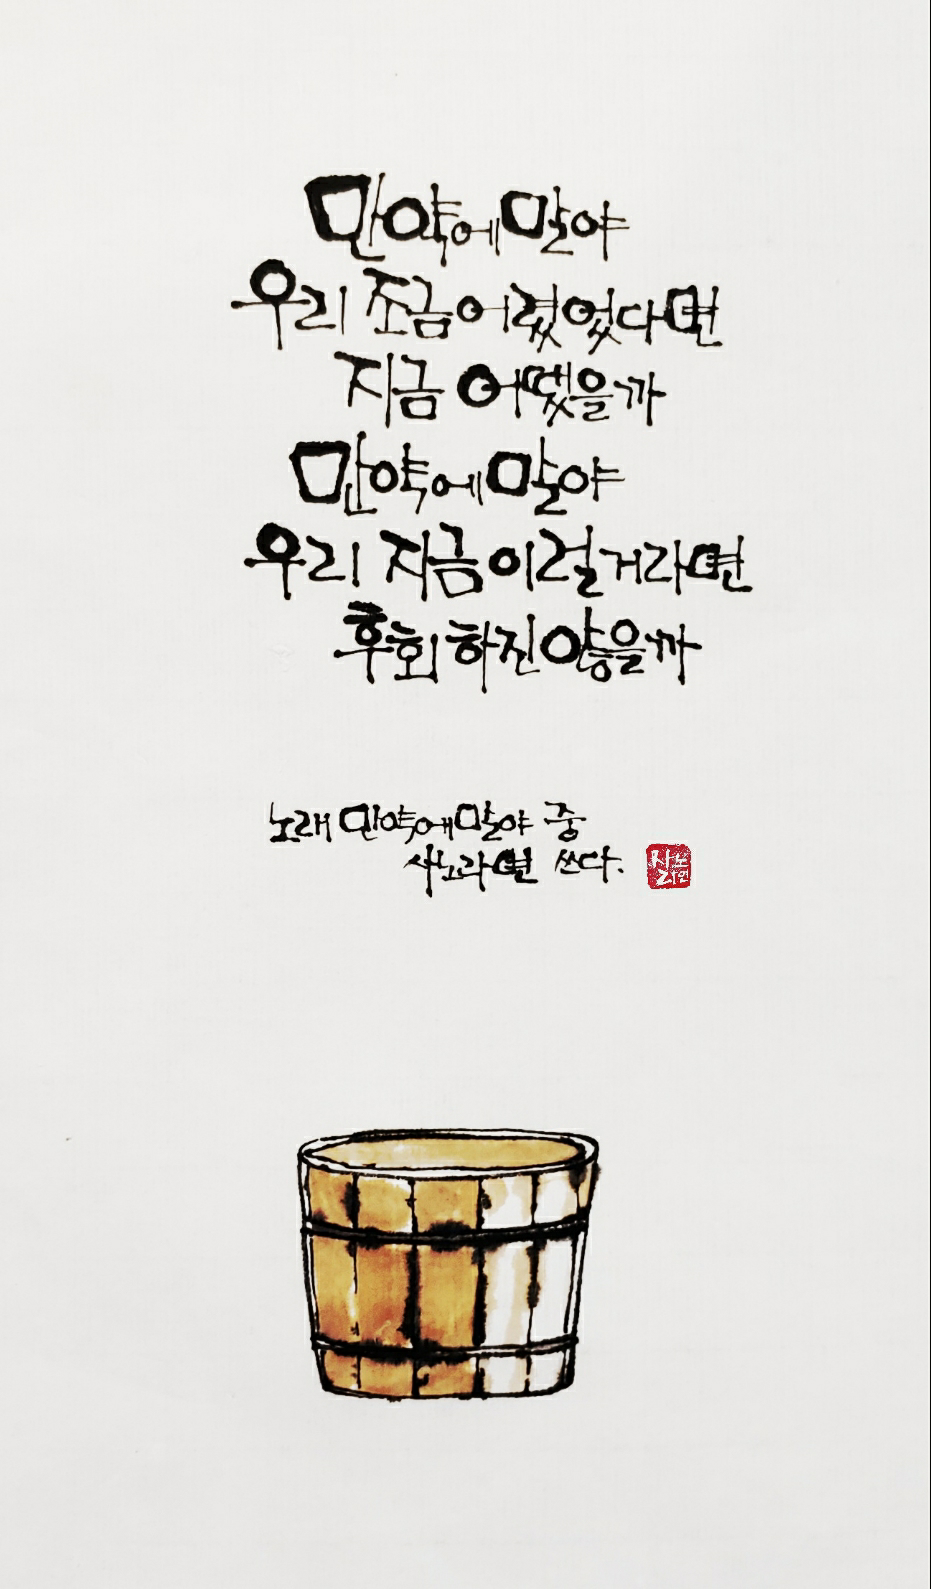 만약에 말야
우리 조금 어렸었다면
지금 어땠을까
만약에 말야
우리 지금 이럴거라면
후회 하진 않을까
노래 만약에말야 중
사노라면 쓰다.
사노
라면